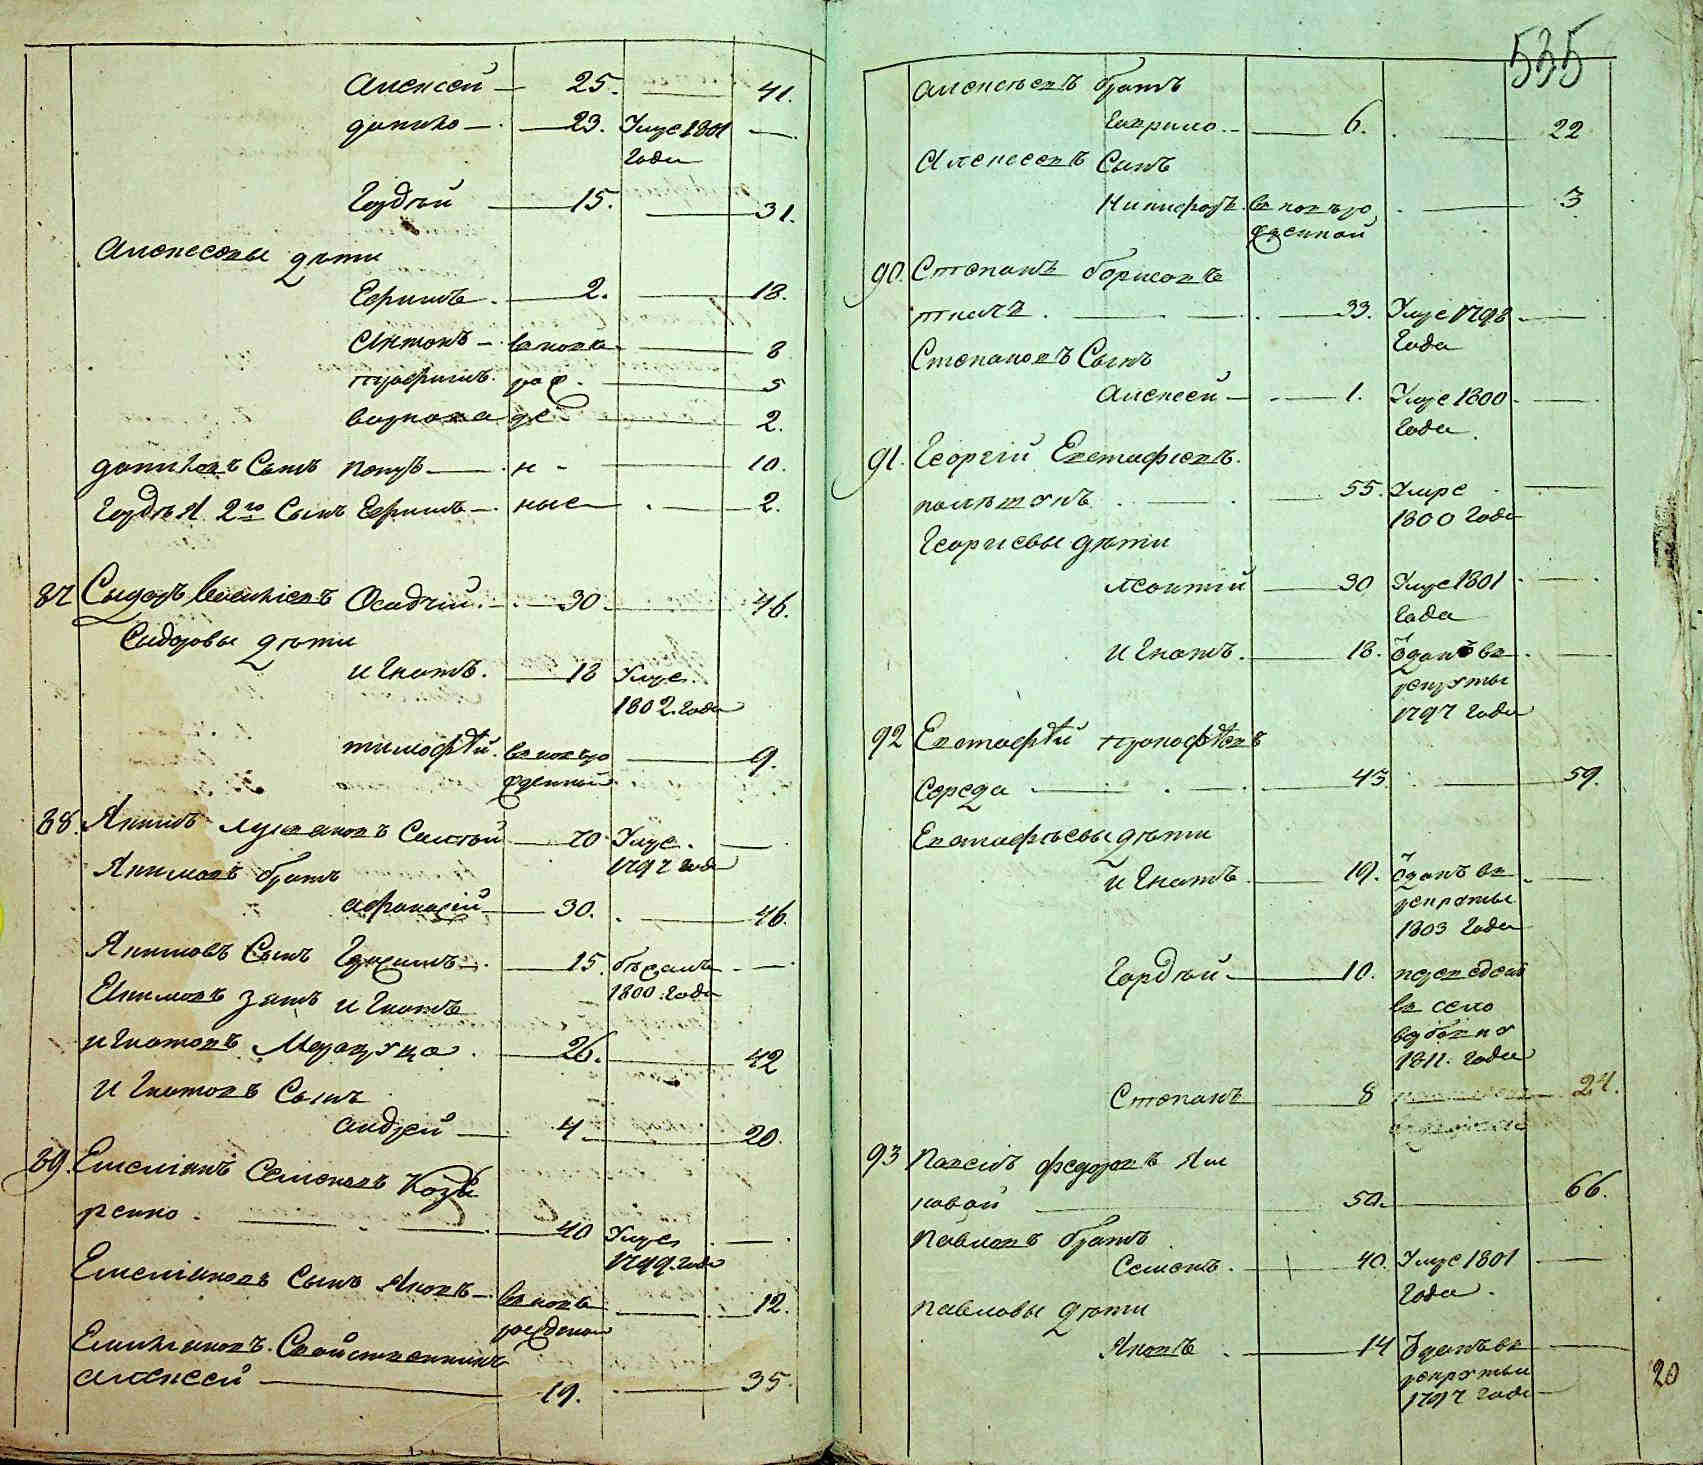 535
Алексей — 25. — 41.
данило — 23. Умре 1801 —
Года
Гордѣй — 15. — 31.
Алексеевы дѣти
Ефримъ — 2. — 18.
Антонъ — вновь — 8
трофимъ рож — 5
варлава де — 2.
даниловъ Сынъ петръ — н — 10.
Гордѣя 2го Сынъ Ефримъ — ные — 2.
87 Сидоръ Васильевъ Осадчий — 30 — 46.
Сидоровы дѣти
игнатъ — 18 Умре
1802. Года
тимофѣй. вновьро — 9.
жденный
88. Якимъ лукьяновъ Святой — 70 Умре —
1797 года
Якимовъ братъ
афанасий — 30. — 46.
Якимовъ Сынъ Герасимъ — 15. бѣжалъ —
1800. Года
Екимовъ зять игнатъ
игнатовъ — 26. — 42
игнатовъ Сынъ
андрей — 4. — 20
89. Емелианъ Семеновъ Козы
ренко — 40 Умре —
1799. года
Емелиановъ Сынъ Яковъ — вновь — 12.
рожденой
Емилиановъ Свойственникъ
алексей — 19. — 35.
алексѣевъ братъ
Гаврило — 6. — 22
Алексеевъ Сынъ
Никифоръ. вновьро — 3
жденной
90. Степанъ борисовъ
ткачъ — 33. Умре 1798 —
Года
Степановъ Сынъ
Алексей — 1. Умре 1800 —
Года.
91. Георгий Евстафиевъ
— 55. Умре —
1800 Года
Георгиевы дѣти
леонтий — 30 Умре 1801 —
Года
игнатъ. — 18. Отданъ въ —
рекруты
1797 Года
92 Евстафѣй прокофѣевъ
Середа — 43 — 59.
Евстафьевы дѣти
игнатъ — 19. Отданъ въ —
рекруты
1803 Года
Гордѣй — 10. переведенъ
въ село
вербовку
1811. Года
Степанъ — 8 — 24.
93 Павелъ федоровъ Ям
ковой — 50. — 66.
павловъ братъ
Семенъ. — 40. Умре 1801 —
Года.
павловы дѣти
Яковъ — 14 Отданъ въ —
рекруты
1797 Года
20